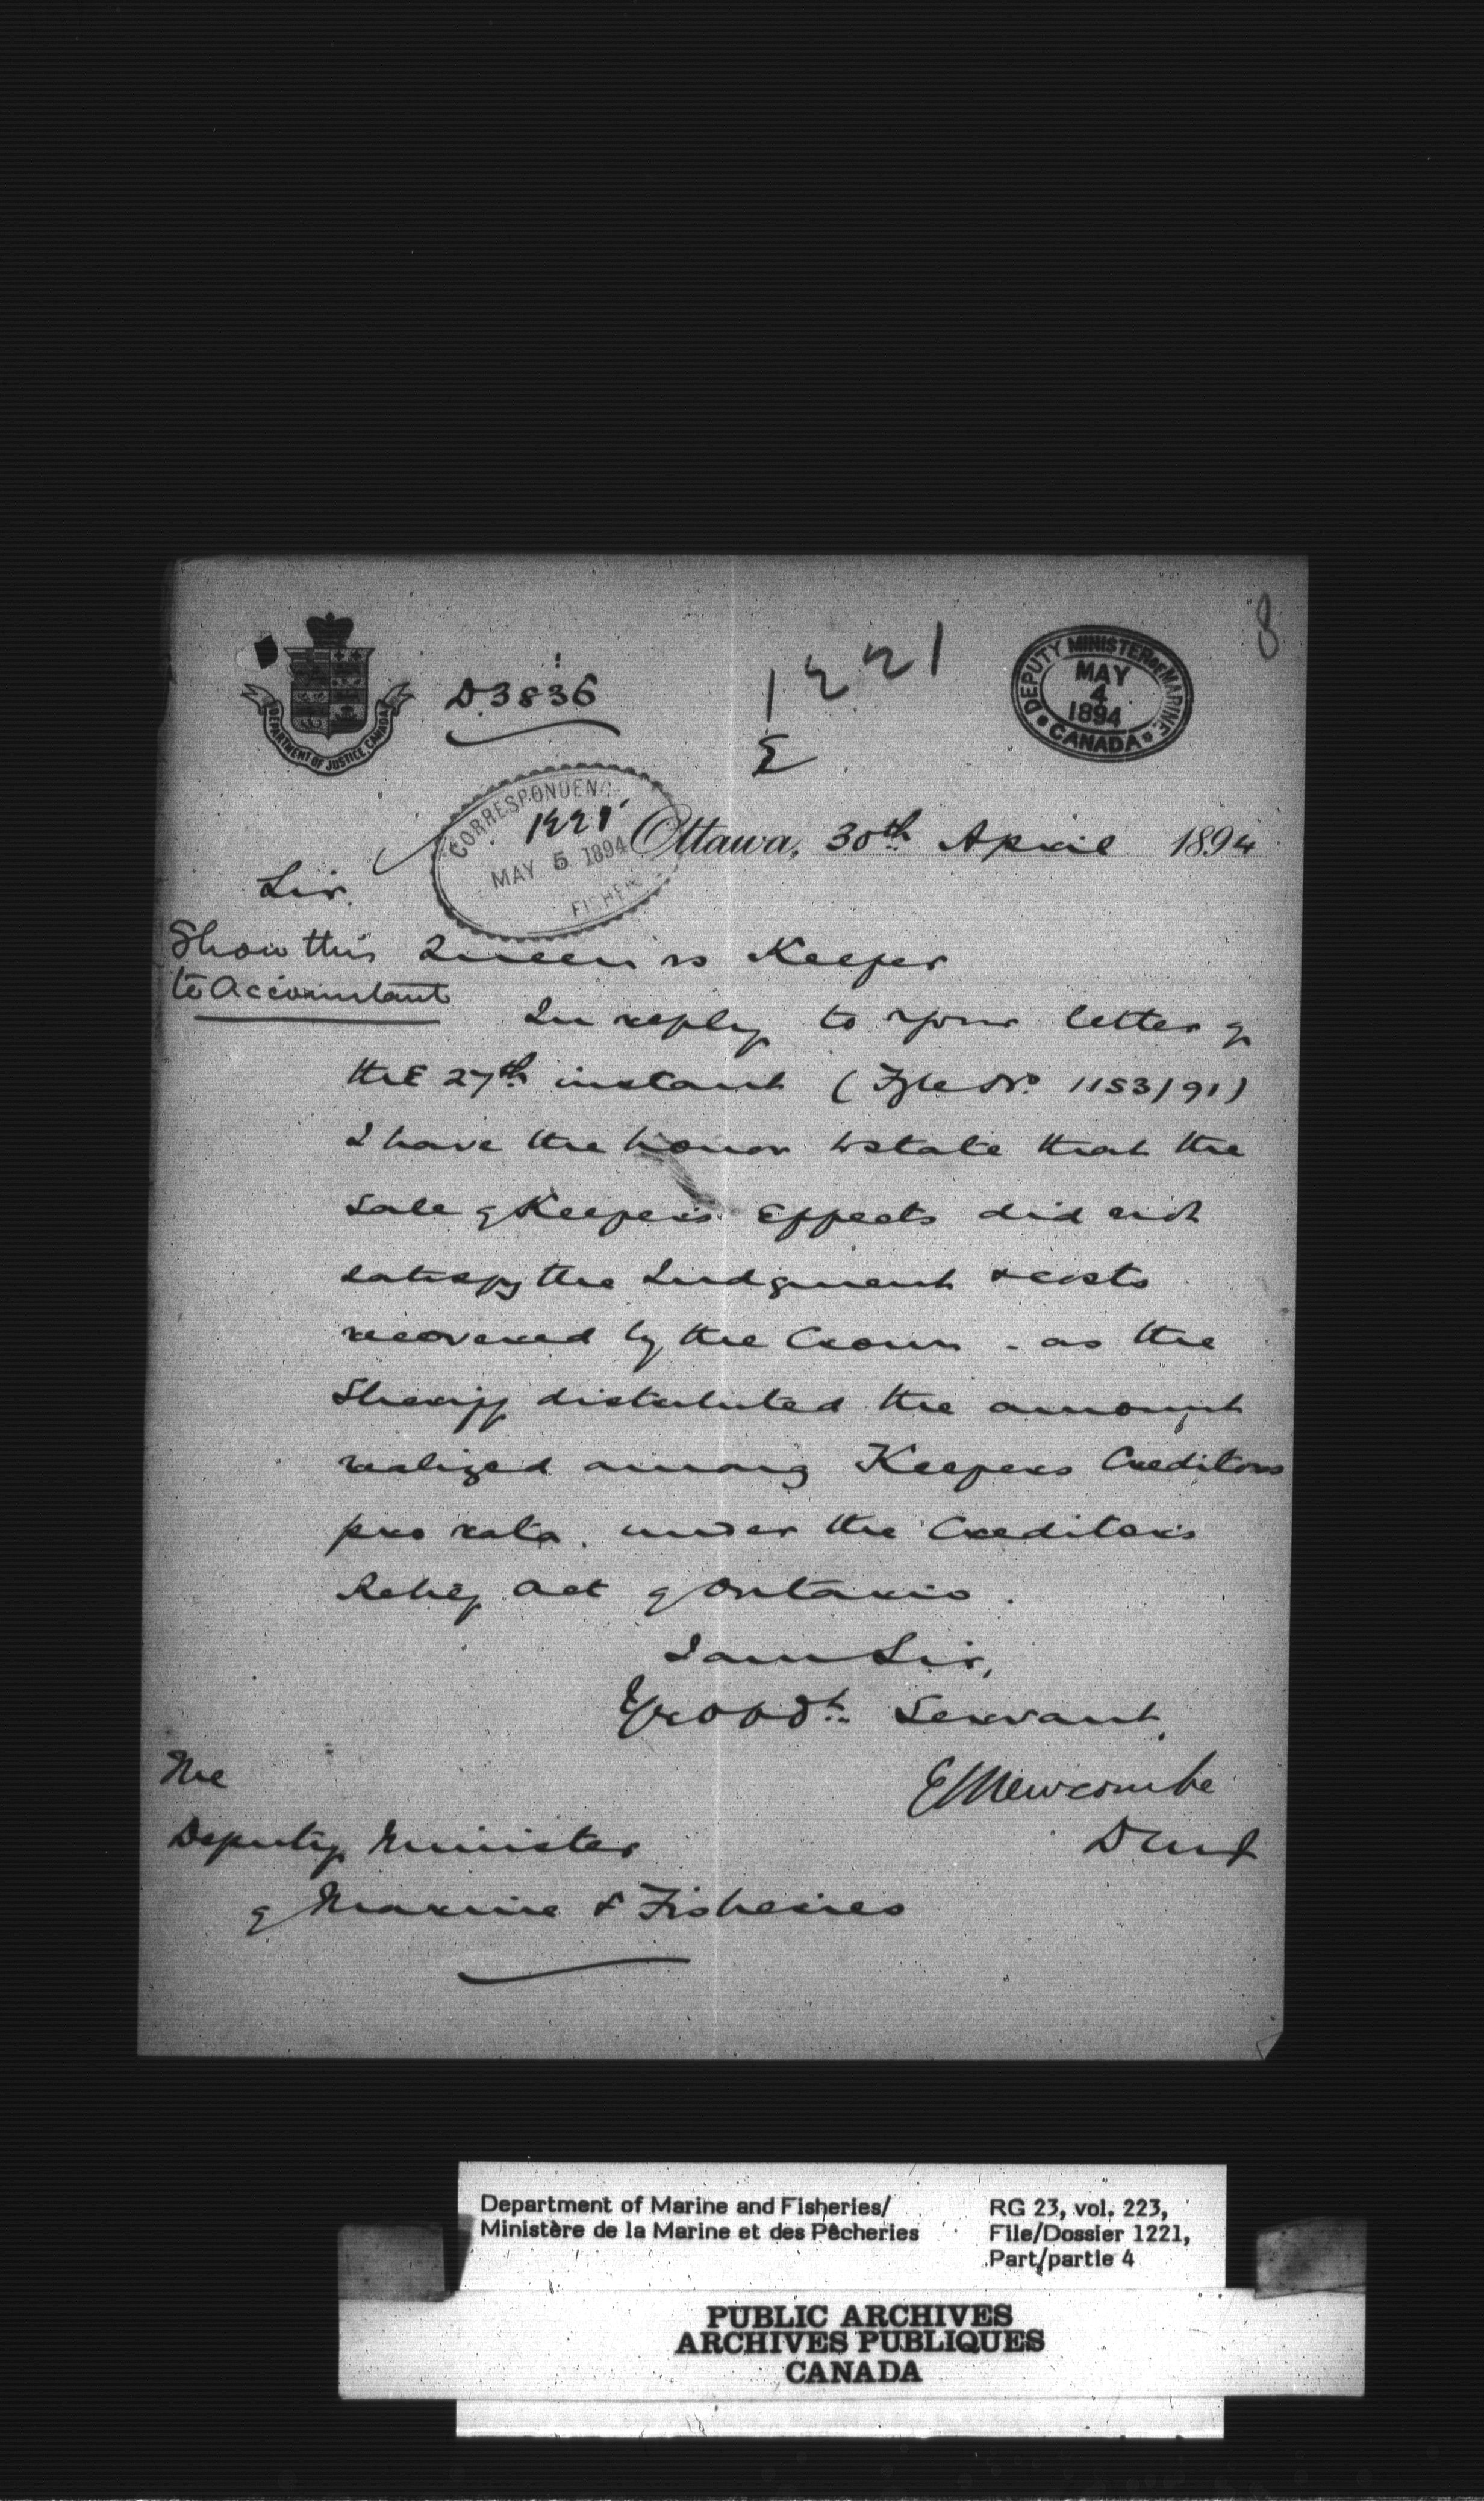 8
DEPARTMENT OF JUSTICE, CANADA
D3836
1221
E
DEPUTY MINISTER OF MARINE
MAY
4
1894
CANADA
CORRESPONDENC
1221
MAY 5 1894
FISHER
Ottawa, 30th April 1894
Sir,
Show this
to Accountant
Queen vs Keeper
In reply to your letter of
the 27th instant (Fyle No. 1153/91)
I have the honor to state that the
sale of Keeper's Effects did not
satisfy the Judgment & costs
recovered by the Crown - as the
Sheriff distributed the amount
realized among Keepers Creditors
pro rata. under the Creditor's
Relief Act of Ontario.
I am Sir,
Yr obdt. Servant,
E L Newcombe
D M J
The
Deputy Minister
of Marine & Fisheries
Department of Marine and Fisheries/
Ministère de la Marine et des Pêcheries
RG 23, vol. 223,
File/Dossier 1221,
Part/partie 4
PUBLIC ARCHIVES
ARCHIVES PUBLIQUES
CANADA